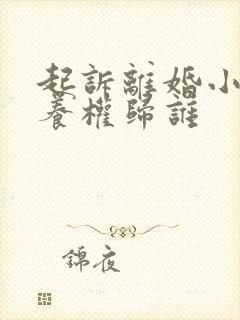 起訴離婚小
養權歸誰
錦夜